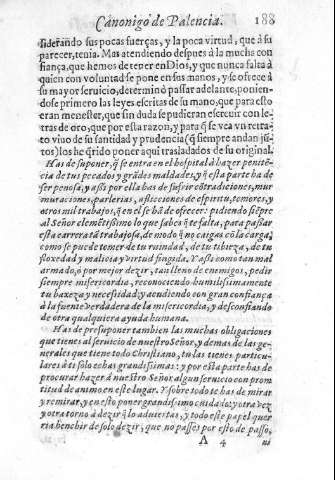 Canonigo de Palencia. 188
siderando sus pocas fuerças, y la poca virtud, que à su
parecer, tenia. Mas atendiendo despues à la mucha con
fiança, que hemos de tener en Dios, y que nunca falta à
quien con voluntad se pone en sus manos, y se ofrece à
su mayor seruicio, determinò passar adelante, ponien-
dose primero las leyes escritas de su mano, que para esto
eran menester, que sin duda se pudieran escreuir con le-
tras de oro, que por esta razon, y para q̃ se vea vn retra-
to viuo de su santidad y prudencia (q̃ siempre andan jũ-
tos) los he q̃rido poner aqui trasladados de su original.
Has de suponer, q̃ se entra en el hospital à hazer penitẽ-
cia de tus pecados y grãdes maldades, y q̃ esta parte ha de
ser penosa, y assi por ella has de sufrir cõtradiciones, mur
muraciones, parlerias, aflicciones de espiritu, temores, y
otros mil trabajos, q̃ en el se hã de ofrecer: pidiendo siẽpre
al Señor clemẽtissimo lo que sabes q̃ te falta, para passar
esta carrera tã trabajosa, de modo q̃ no caigas cõ la carga,
como se puede temer de tu ruindad, de tu tibieza, de tu
floxedad y malicia y virtud fingida. Y assi como tan mal
armado, ò por mejor dezir, tan lleno de enemigos, pedir
siempre misericordia, reconociendo humilissimamente
tu baxeza y necessidad, y acudiendo con gran confiança
à la fuente verdadera de la misericordia, y desconfiando
de otra qualquiera ayuda humana.
Has de presuponer tambien las muchas obligaciones
que tienes al seruicio de nuestro Señor, y demas de las ge-
nerales que tiene todo Christiano, tu las tienes particu-
lares à ti solo echas grandissimas: y por esta parte has de
procurar hazer à nuestro Señor algun seruicio con prom
titud de animo en este lugar. Y sobre todo te has de mirar
y remirar, y en esto poner grandissimo cuidado: y otra vez
y otra torno à dezir q̃ lo aduiertas, y todo este papel que-
ria henchir de solo dezir, que no passes por esto de passo,
A 4 ni